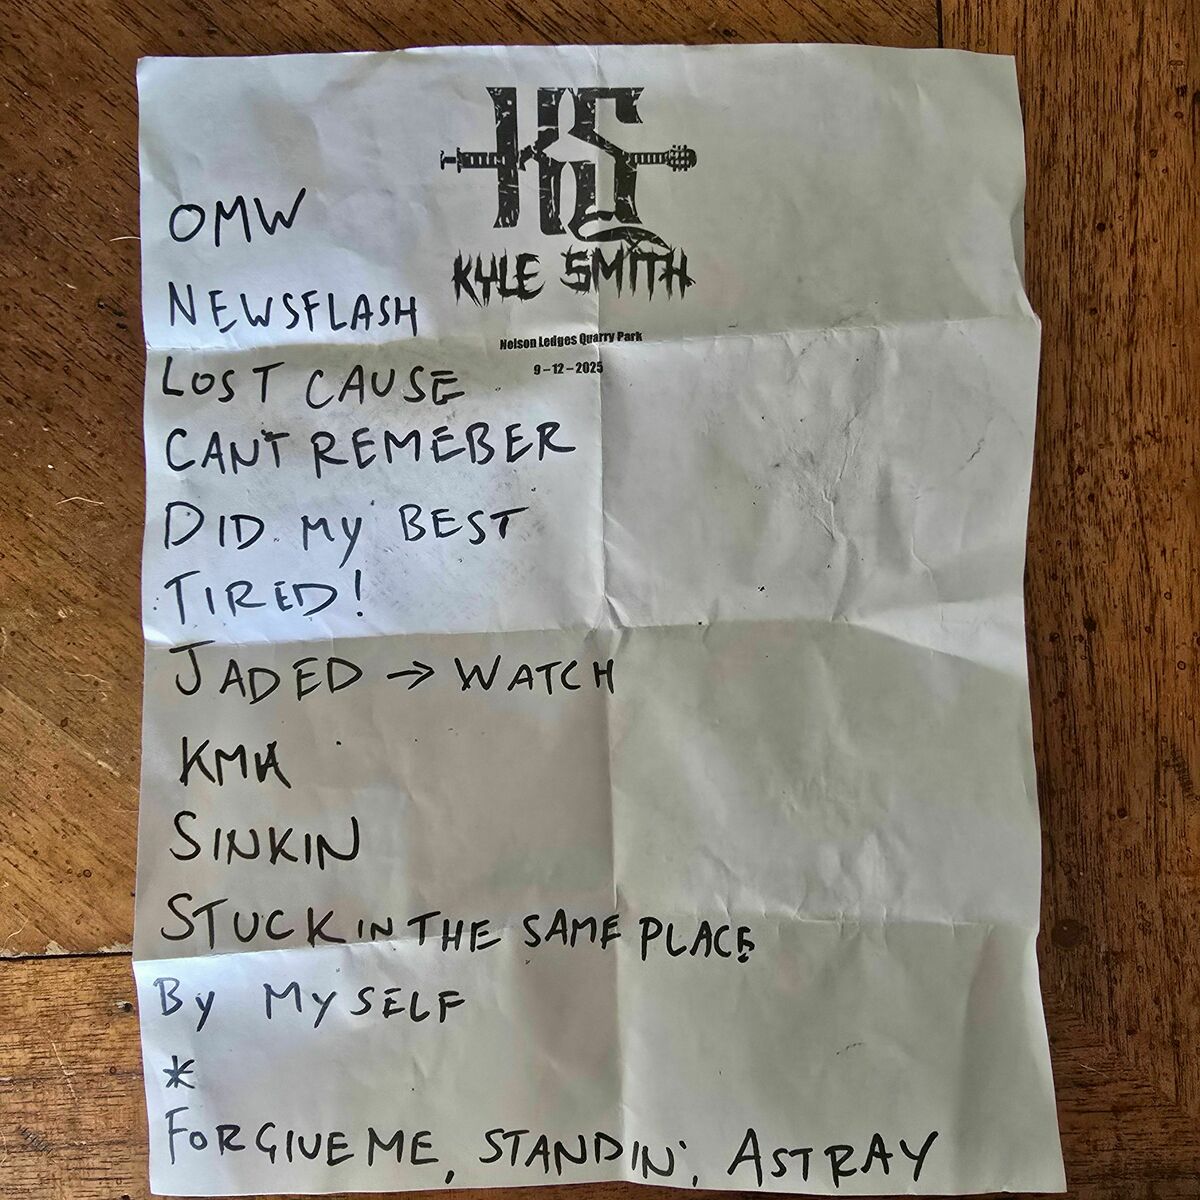 KS
KYLE SMITH
Nelson Ledges Quarry Park
9-12-2025
OMW
NEWSFLASH
LOST CAUSE
CANT REMEBER
DID MY BEST
TIRED!
JADED → WATCH
KMA
SINKIN
STUCK IN THE SAME PLACE
BY MYSELF
*
FORGIVE ME, STANDIN', ASTRAY